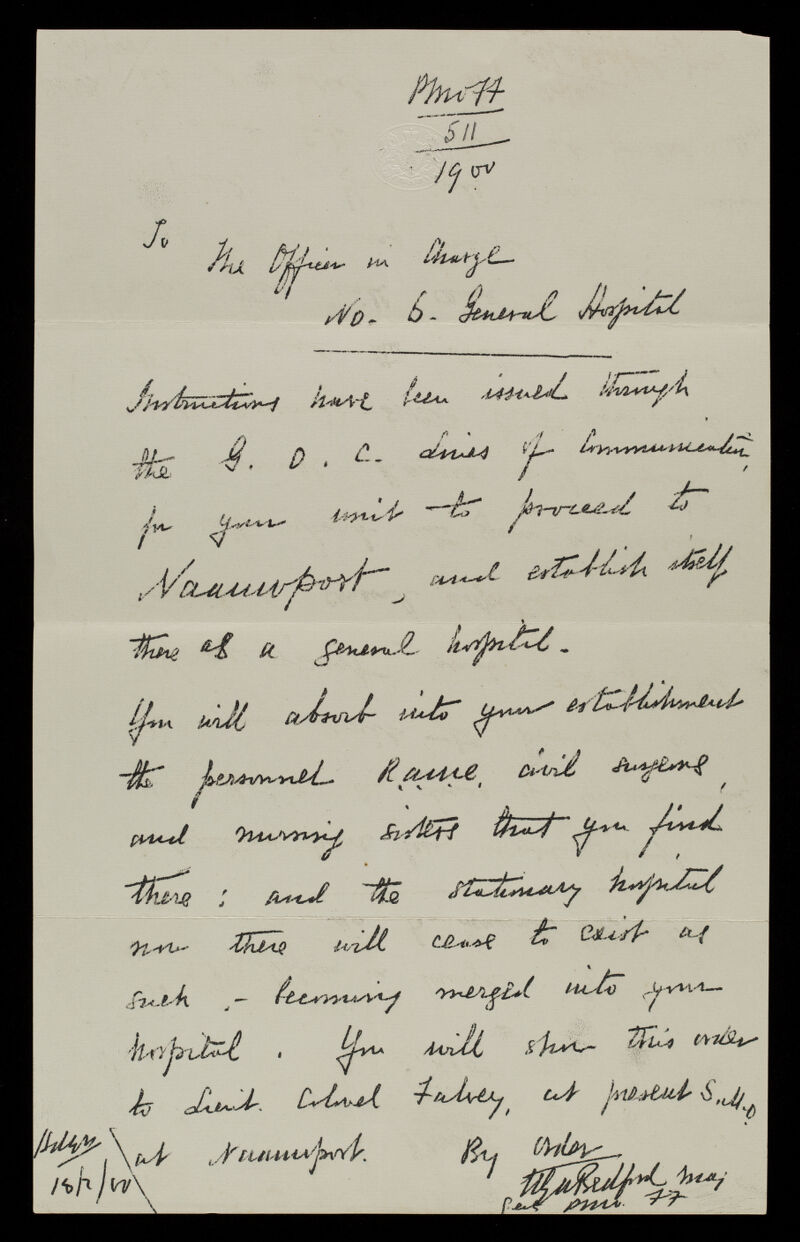 PMO FF
511
1900
To
The Officer in Charge
No. 6. General Hospital
Instructions have been issued through
the G. O. C. Lines of Communication,
for your unit to proceed to
Naauwpoort, and establish itself
there as a general hospital.
You will absorb into your establishment
the personnel R.A.M.C. civil surgeons,
and nursing sisters that you find
there : and the stationary hospital
now there will cease to exist as
such, - becoming merged into your
hospital. You will show this order
to Lieut. Colonel Falvey, at present S.M.O
at Naauwport. By order
Bedford Maj
18/2/00
PMO. FF